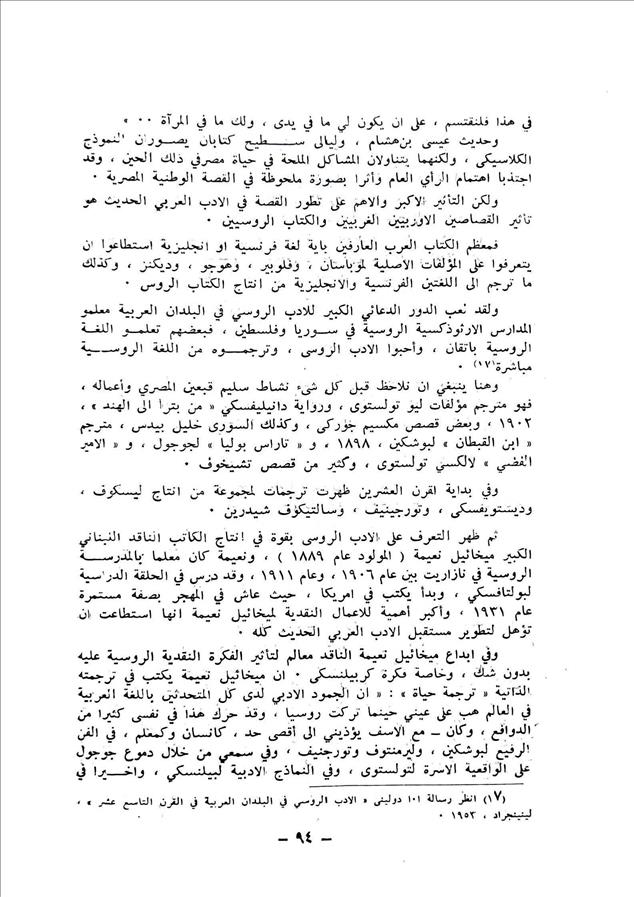 في هذا فلنقتسم ، على ان يكون لي ما في يدى ، ولك ما في المرآة ٠٠ »
وحديث عيسى بن هشام ، وليالى سطيح كتابان يصوران النموذج
الكلاسيكي ، ولكنهما يتناولان المشاكل الملحة في حياة مصر في ذلك الحين ، وقد
اجتذبا اهتمام الرأي العام وأثرا بصورة ملحوظة في القصة الوطنية المصرية ٠
ولكن التأثير الاكبر والاهم على تطور القصة في الادب العربي الحديث هو
تأثير القصاصين الاوربيين الغربيين والكتاب الروسيين ٠
فمعظم الكتاب العرب العارفين باية لغة فرنسية او انجليزية استطاعوا ان
يتعرفوا على المؤلفات الاصلية لموباسان ، وفلوبير ، وهوجو ، وديكنز ، وكذلك
ما ترجم الى اللغتين الفرنسية والانجليزية من انتاج الكتاب الروس ٠
ولقد لعب الدور الدعائي الكبير للادب الروسي في البلدان العربية معلمو
المدارس الارثوذكسية الروسية في سوريا وفلسطين ، فبعضهم تعلمو اللغة
الروسية باتقان ، وأحبوا الادب الروسى ، وترجموه من اللغة الروسية
مباشرة(١٧) ٠
وهنا ينبغي ان نلاحظ قبل كل شىء نشاط سليم قبعين المصري وأعماله ،
فهو مترجم مؤلفات ليو تولستوى ، ورواية دانيليفسكي « من بترا الى الهند » ،
١٩٠٢ ، وبعض قصص مكسيم جوركى ، وكذلك السورى خليل بيدس ، مترجم
« ابن القبطان » لبوشكين ، ١٨٩٨ ، و « تاراس بوليا » لجوجول ، و « الامير
الفضي » لالكسي تولستوى ، وكثير من قصص تشيخوف ٠
وفي بداية القرن العشرين ظهرت ترجمات لمجموعة من انتاج ليسكوف ،
وديستويفسكى ، وتورجينيف ، وسالتيكوف شيدرين ٠
ثم ظهر التعرف على الادب الروسى بقوة في انتاج الكاتب الناقد اللبناني
الكبير ميخائيل نعيمة ( المولود عام ١٨٨٩ ) ، ونعيمة كان معلما بالمدرسة
الروسية في نازاريت بين عام ١٩٠٦ ، وعام ١٩١١ ، وقد درس في الحلقة الدراسية
لبولتافسكي ، وبدأ يكتب في امريكا ، حيث عاش في المهجر بصفة مستمرة
عام ١٩٣١ ، وأكبر أهمية للاعمال النقدية لميخائيل نعيمة انها استطاعت ان
تؤهل لتطوير مستقبل الادب العربي الحديث كله ٠
وفي ابداع ميخائيل نعيمة الناقد معالم لتأثير الفكرة النقدية الروسية عليه
بدون شك ، وخاصة فكرة كربيلنسكى ٠ ان ميخائيل نعيمة يكتب في ترجمته
الذاتية « ترجمة حياة » : « ان الجمود الادبي لدى كل المتحدثين باللغة العربية
في العالم هب على عيني حينما تركت روسيا ، وقد حرك هذا في نفسى كثيرا من
الدوافع ، وكان ــ مع الاسف يؤذيني الى أقصى حد ، كانسان وكمعلم ، في الفن
الرفيع لبوشكين ، وليرمنتوف وتورجنيف ، وفي سمعي من خلال دموع جوجول
على الواقعية الاسرة لتولستوى ، وفي النماذج الادبية لبيلنسكي ، واخيرا في
(١٧) انظر رسالة ١٠١ دولينى « الادب الروسي في البلدان العربية في القرن التاسع عشر » ،
لينينجراد ، ١٩٥٣ ٠
ــ ٩٤ ــ